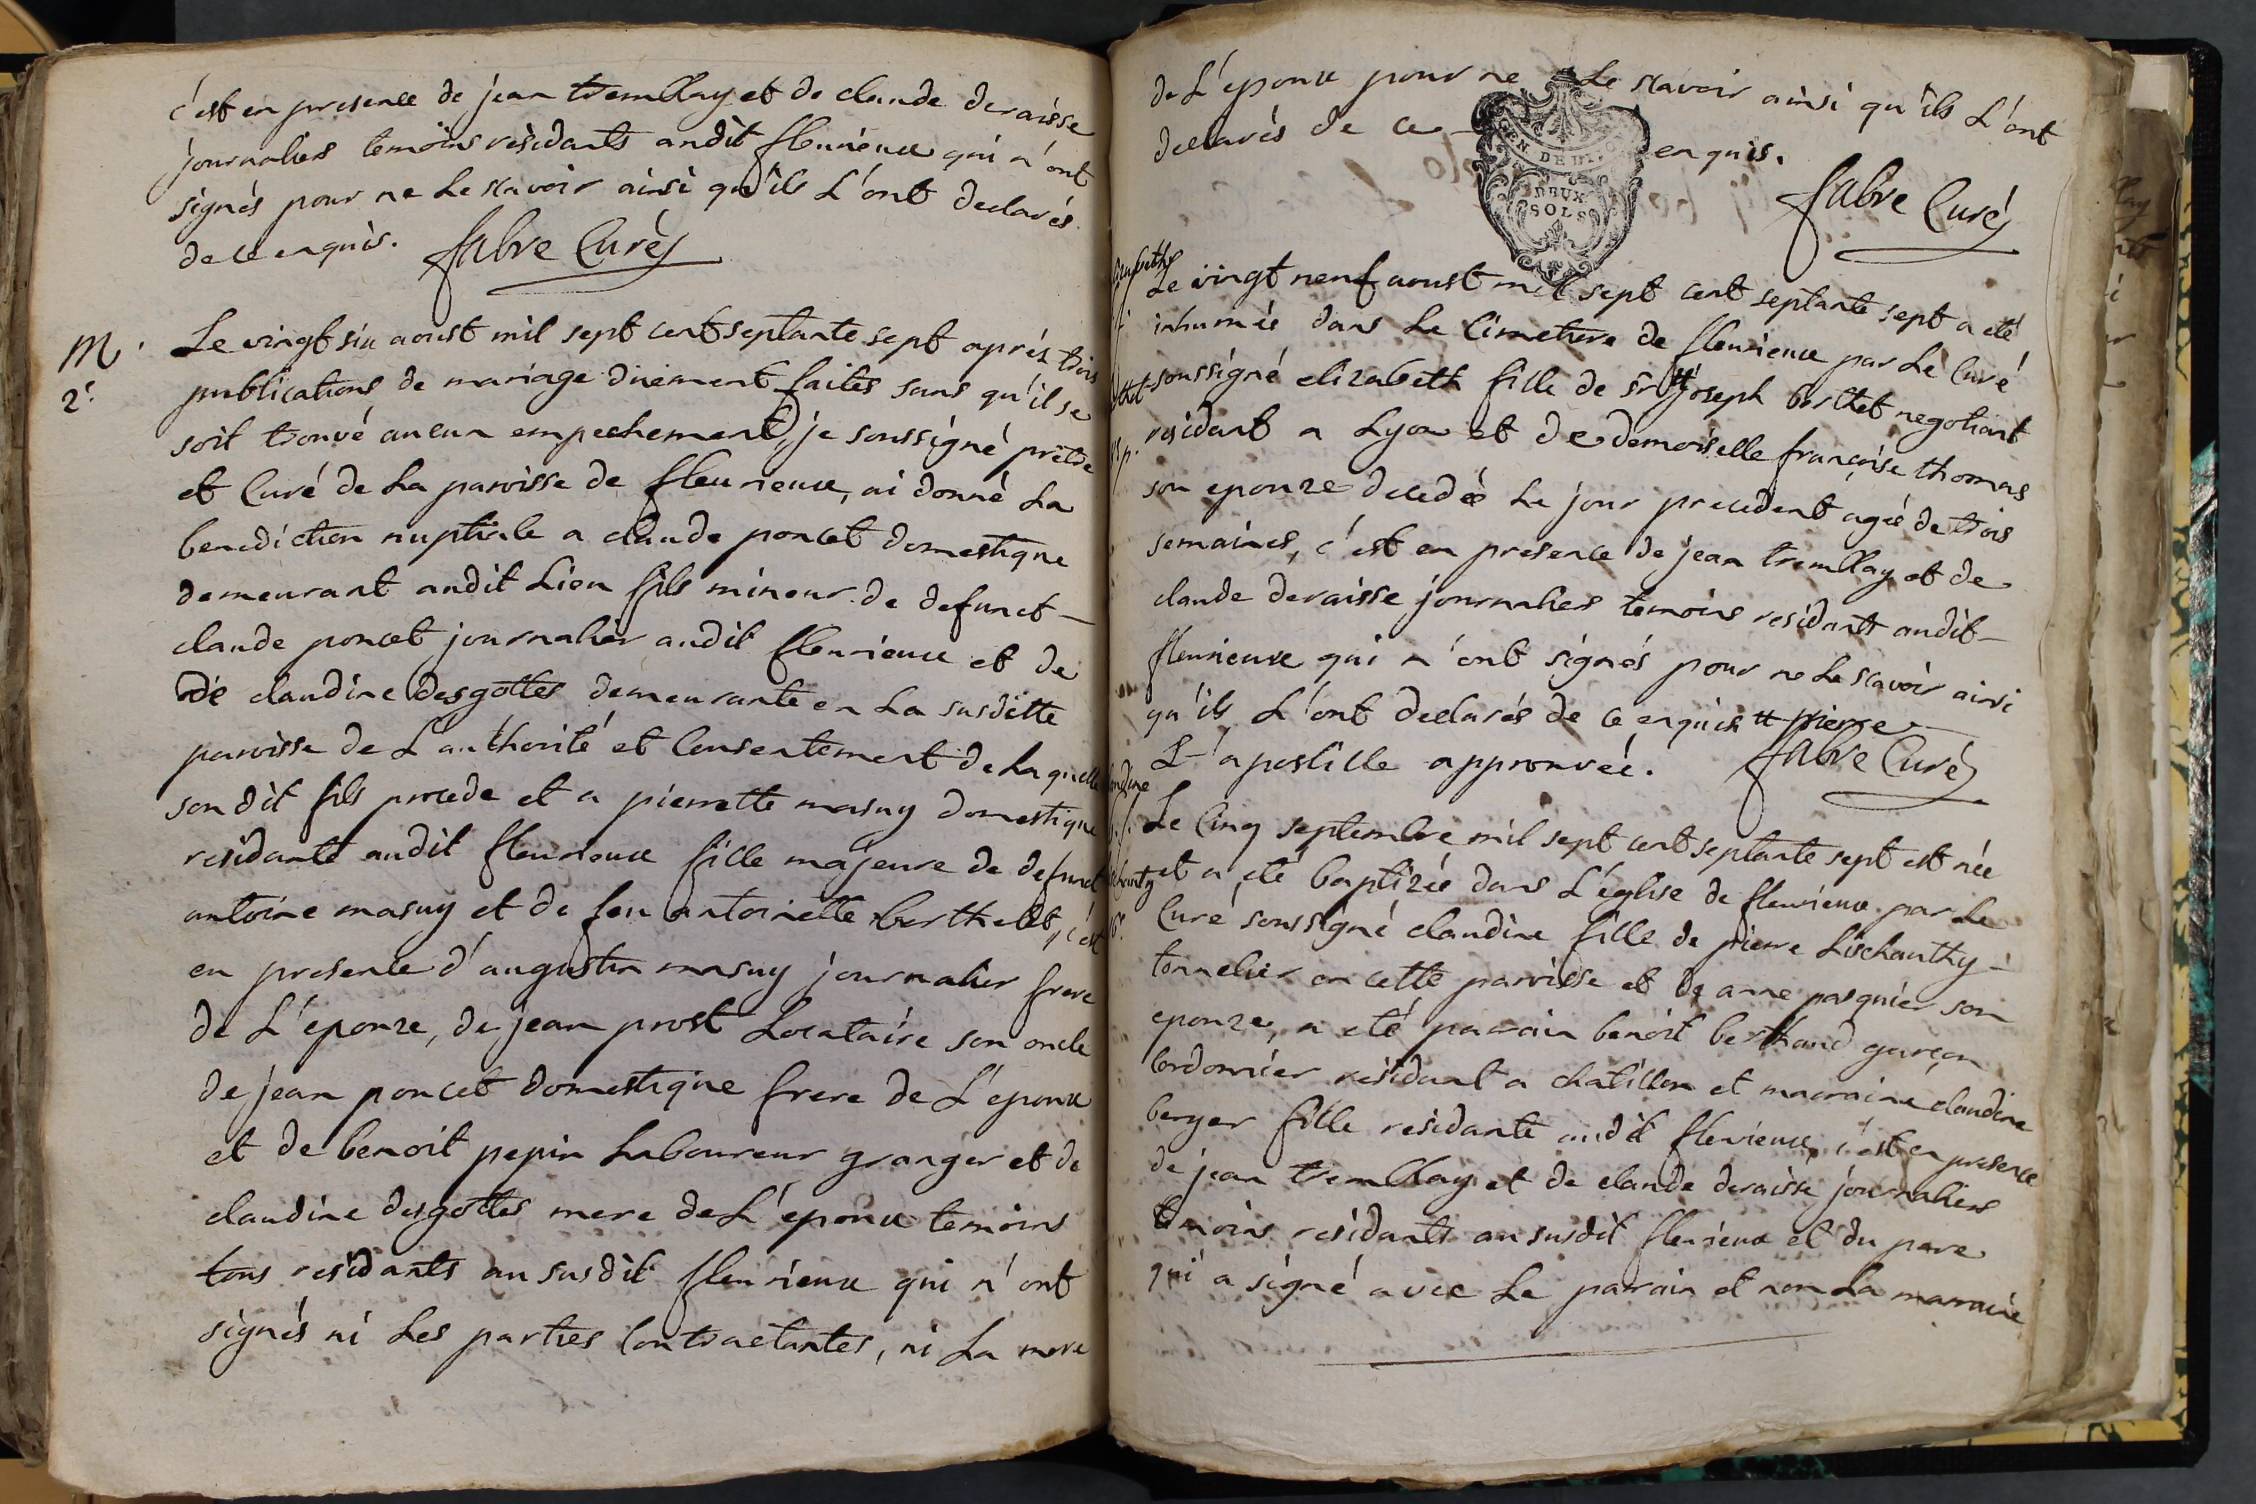 c'est en presence de jean tremblay et de claude deraisse
journaliers temoins residants audit fleurieux qui n'ont
signés pour ne le scavoir ainsi qu'ils L'ont declarés
de ce enquis. fabre Curé
M.
2e
Le vingt six aoust mil sept cent septante sept aprés trois
publications de mariage duement faites sans qu'il se
soit trouvé aucun empechement, je soussigné prêtre
et Curé de La paroisse de fleurieux, ai donné La
benediction nuptiale a claude poncet domestique
demeurant audit Lieu fils mineur de defunct
claude poncet journalier audit fleurieux et de
claudine desgottes demeurante en La susditte
paroisse de L'authorité et Consentement de Laquelle
son dit fils procede et a pierrette masuy domestique
residante audit fleurieux fille majeure de defunct
antoine masuy et de feu antoinette berthelet, c'est
en presence d'augustin masuy journalier frere
de L'epouze, de jean prost Locataire son oncle
de jean poncet domestique frere de L'epoux
et de benoit pepin Laboureur granger et de
claudine desgottes mere de L'epoux temoins
tous residants au susdit fleurieux qui n'ont
signés ni Les parties Contractantes, ni La mere
de L'epoux pour ne Le scavoir ainsi qu'ils L'ont
declarés de ce enquis.
DEUX
SOLS
fabre Curé
Le vingt neuf aoust mil sept cent septante sept a eté
inhumée dans Le Cimetiere de fleurieux par Le Curé
soussigné elizabeth fille de sr # joseph berthet negotiant
residant a Lyon et de demoiselle françoise thomas
son epouze decedée Le jour precedent agée de trois
semaines, c'est en presence de jean tremblay et de
claude deraisse journaliers temoins residants audit
fleurieux qui n'ont signés pour ne Le scavoir ainsi
qu'ils L'ont declarés de ce enquis # pierre
L'apostille approuvée. fabre Curé
Le Cinq septembre mil sept cent septante sept est née
et a eté baptizée dans L'église de fleurieux par Le
Curé soussigné claudine fille de pierre Lischauthy
tonnelier en cette paroisse et de anne pasquier son
epouze, a eté parrain benoit berthaud garçon
Cordonnier residant a chatillon et marraine claudine
berger fille residante audit fleurieux, c'est en presence
de jean tremblay et de claude deraisse journaliers
temoins residants au susdit fleurieux et du pere
qui a signé avec Le parrain et non La marraine